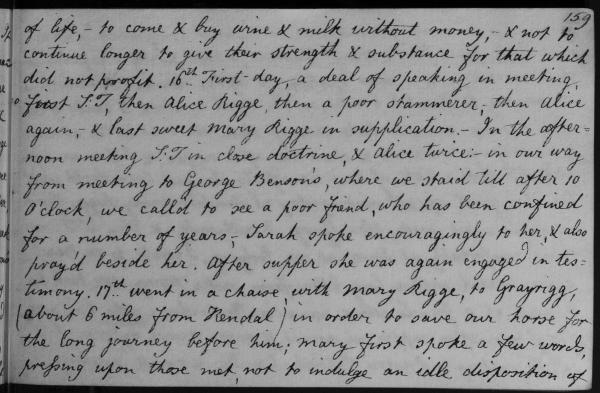 159
of life,- to come & buy wine & milk without money,- & not to
continue longer to give their strength & substance for that which
did not profit. 16th First-day, a deal of speaking in meeting,
first S:T, then Alice Rigge, then a poor stammerer, then Alice
again,- & last sweet Mary Rigge in supplication.- In the after-
noon meeting S:T in close doctrine, & Alice twice:- in our way
from meeting to George Benson's, where we staid till after 10
O'clock, we call'd to see a poor friend, who has been confined
for a number of years,- Sarah spoke encouragingly to her, & also
pray'd beside her. After supper she was again engaged in tes-
timony. 17th went in a chaise, with Mary Rigge, to Grayrigg,
(about 6 miles from Kendal) in order to save our horse for
the long journey before him; Mary first spoke a few words,
pressing upon those met, not to indulge an idle disposition of